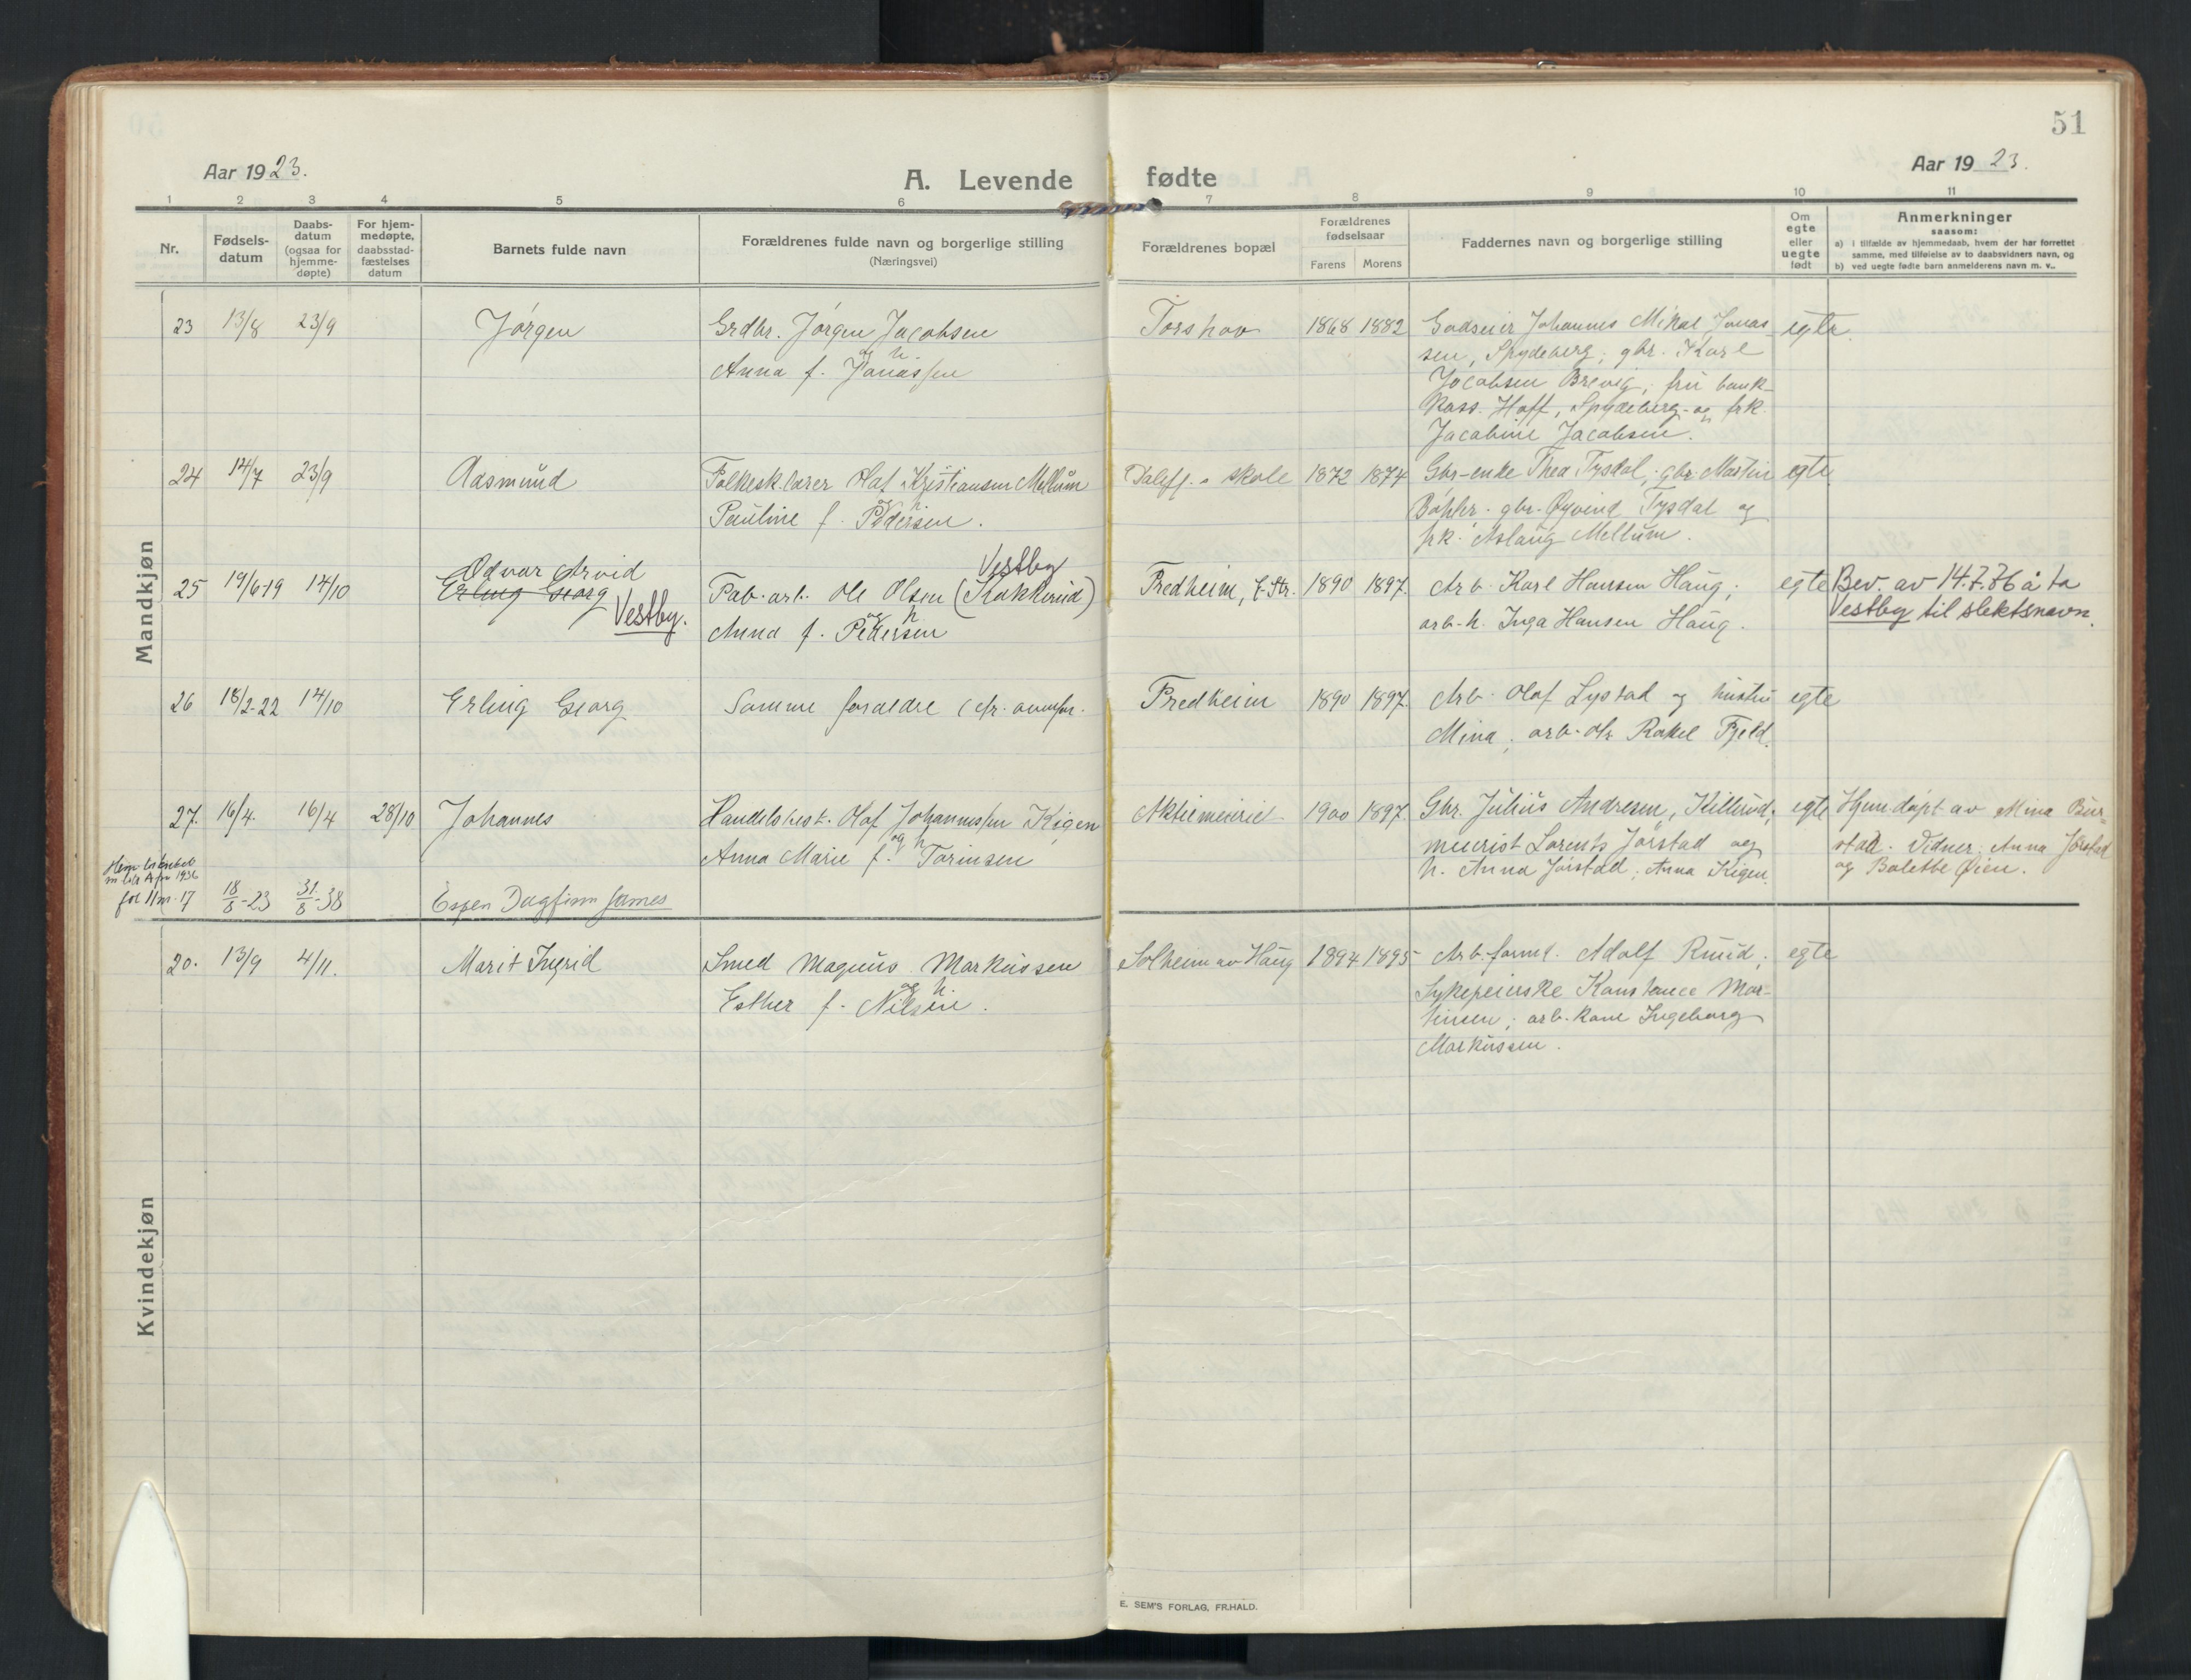 51
Aar 1923.
A. Levende fødte
Aar 1923.
1 2 3 4 5 6 7 8 9 10 11
Nr.
Fødsels-
datum
Daabs-
datum
(ogsaa for
hjemme-
døpte)
For hjem-
medøpte,
daabsstad-
fæstelses
datum
Barnets fulde navn
Forældrenes fulde navn og borgerlige stilling
(Næringsvei)
Forældrenes bopæl
Forældrenes
fødselsaar
Farens Morens
Faddernes navn og borgerlige stilling
Om
egte
eller
uegte
født
Anmerkninger
saasom:
a) i tilfælde av hjemmedaab, hvem der har forrettet
samme, med tilføielse av to daabsvidners navn, og
b) ved uegte fødte barn anmelderens navn m. v..
Mandkjøn
23 13/8 23/9 Jørgen
Grdbr. Jørgen Jacobsen
og h.
Anna f. Jonassen
Torshov 1868 1882
Godseier Johannes Mikal Jonas-
sen, Spydeberg; gbr. Karl
Jacobsen Brevig; fru bank-
kass. Hoff, Spydeberg og frk.
Jacobine Jacobsen.
egte.
24 14/7 23/9 Aasmund
Folkesk.lærer Olaf Kristiansen Mellum
og h.
Pauline f. Pedersen.
skole 1872 1874
Gbr-enke Thea Tysdal; gbr. Martin
gbr. Øyvind Tysdal og
frk. Aslaug Mellum.
egte
25 19/6-19 14/10
Odvar Arvid
Erling Georg
Vestby.
Vestby
Fab.arb. Ole Olsen (Kakkerud)
og h
Anna f. Pedersen
Fredheim, 1890 1897.
Arb. Karl Hansen Haug;
arb.h. Inga Hansen Haug.
egte
Bev. av 14.7.36 å ta
Vestby til slektsnavn.
26 18/2-22 14/10 Erling Georg
Samme foraeldre (cfr. ovenfor.
Fredheim 1890 1897.
Arb. Olaf Lystad og hustru
Mina; arb. Rakel Fjeld.
egte
27. 16/4. 16/4 28/10 Johannes
Handelsbest. Olaf Johannessen Kigen
og h
Anna Marie f. Torinsen
Aktiemeieriet 1900 1897.
Gbr. Julius Andresen, Killerud;
meierist Lorents Jørstad og
h. Anna Jørstad; Anna Kigen.
egte
Hjemdøpt av Mina Bur-
stad. Vidner: Anna Jørstad
og Bolette Øien.
fol 11 nr. 17 18/8-23 31/8-38 Espen Dagfinn James
Kvindekjøn
20. 13/9 4/11. Marit Ingrid
Smed Magnus Markussen
og h.
Esther f. Nilsen.
Solheim av Haug 1894 1895
Arb.form. Adolf Ruud;
Sykepleierske Konstance Mar-
tinsen; arb.kone Ingeborg
Markussen.
egte
E. SEM'S FORLAG, FR.HALD.